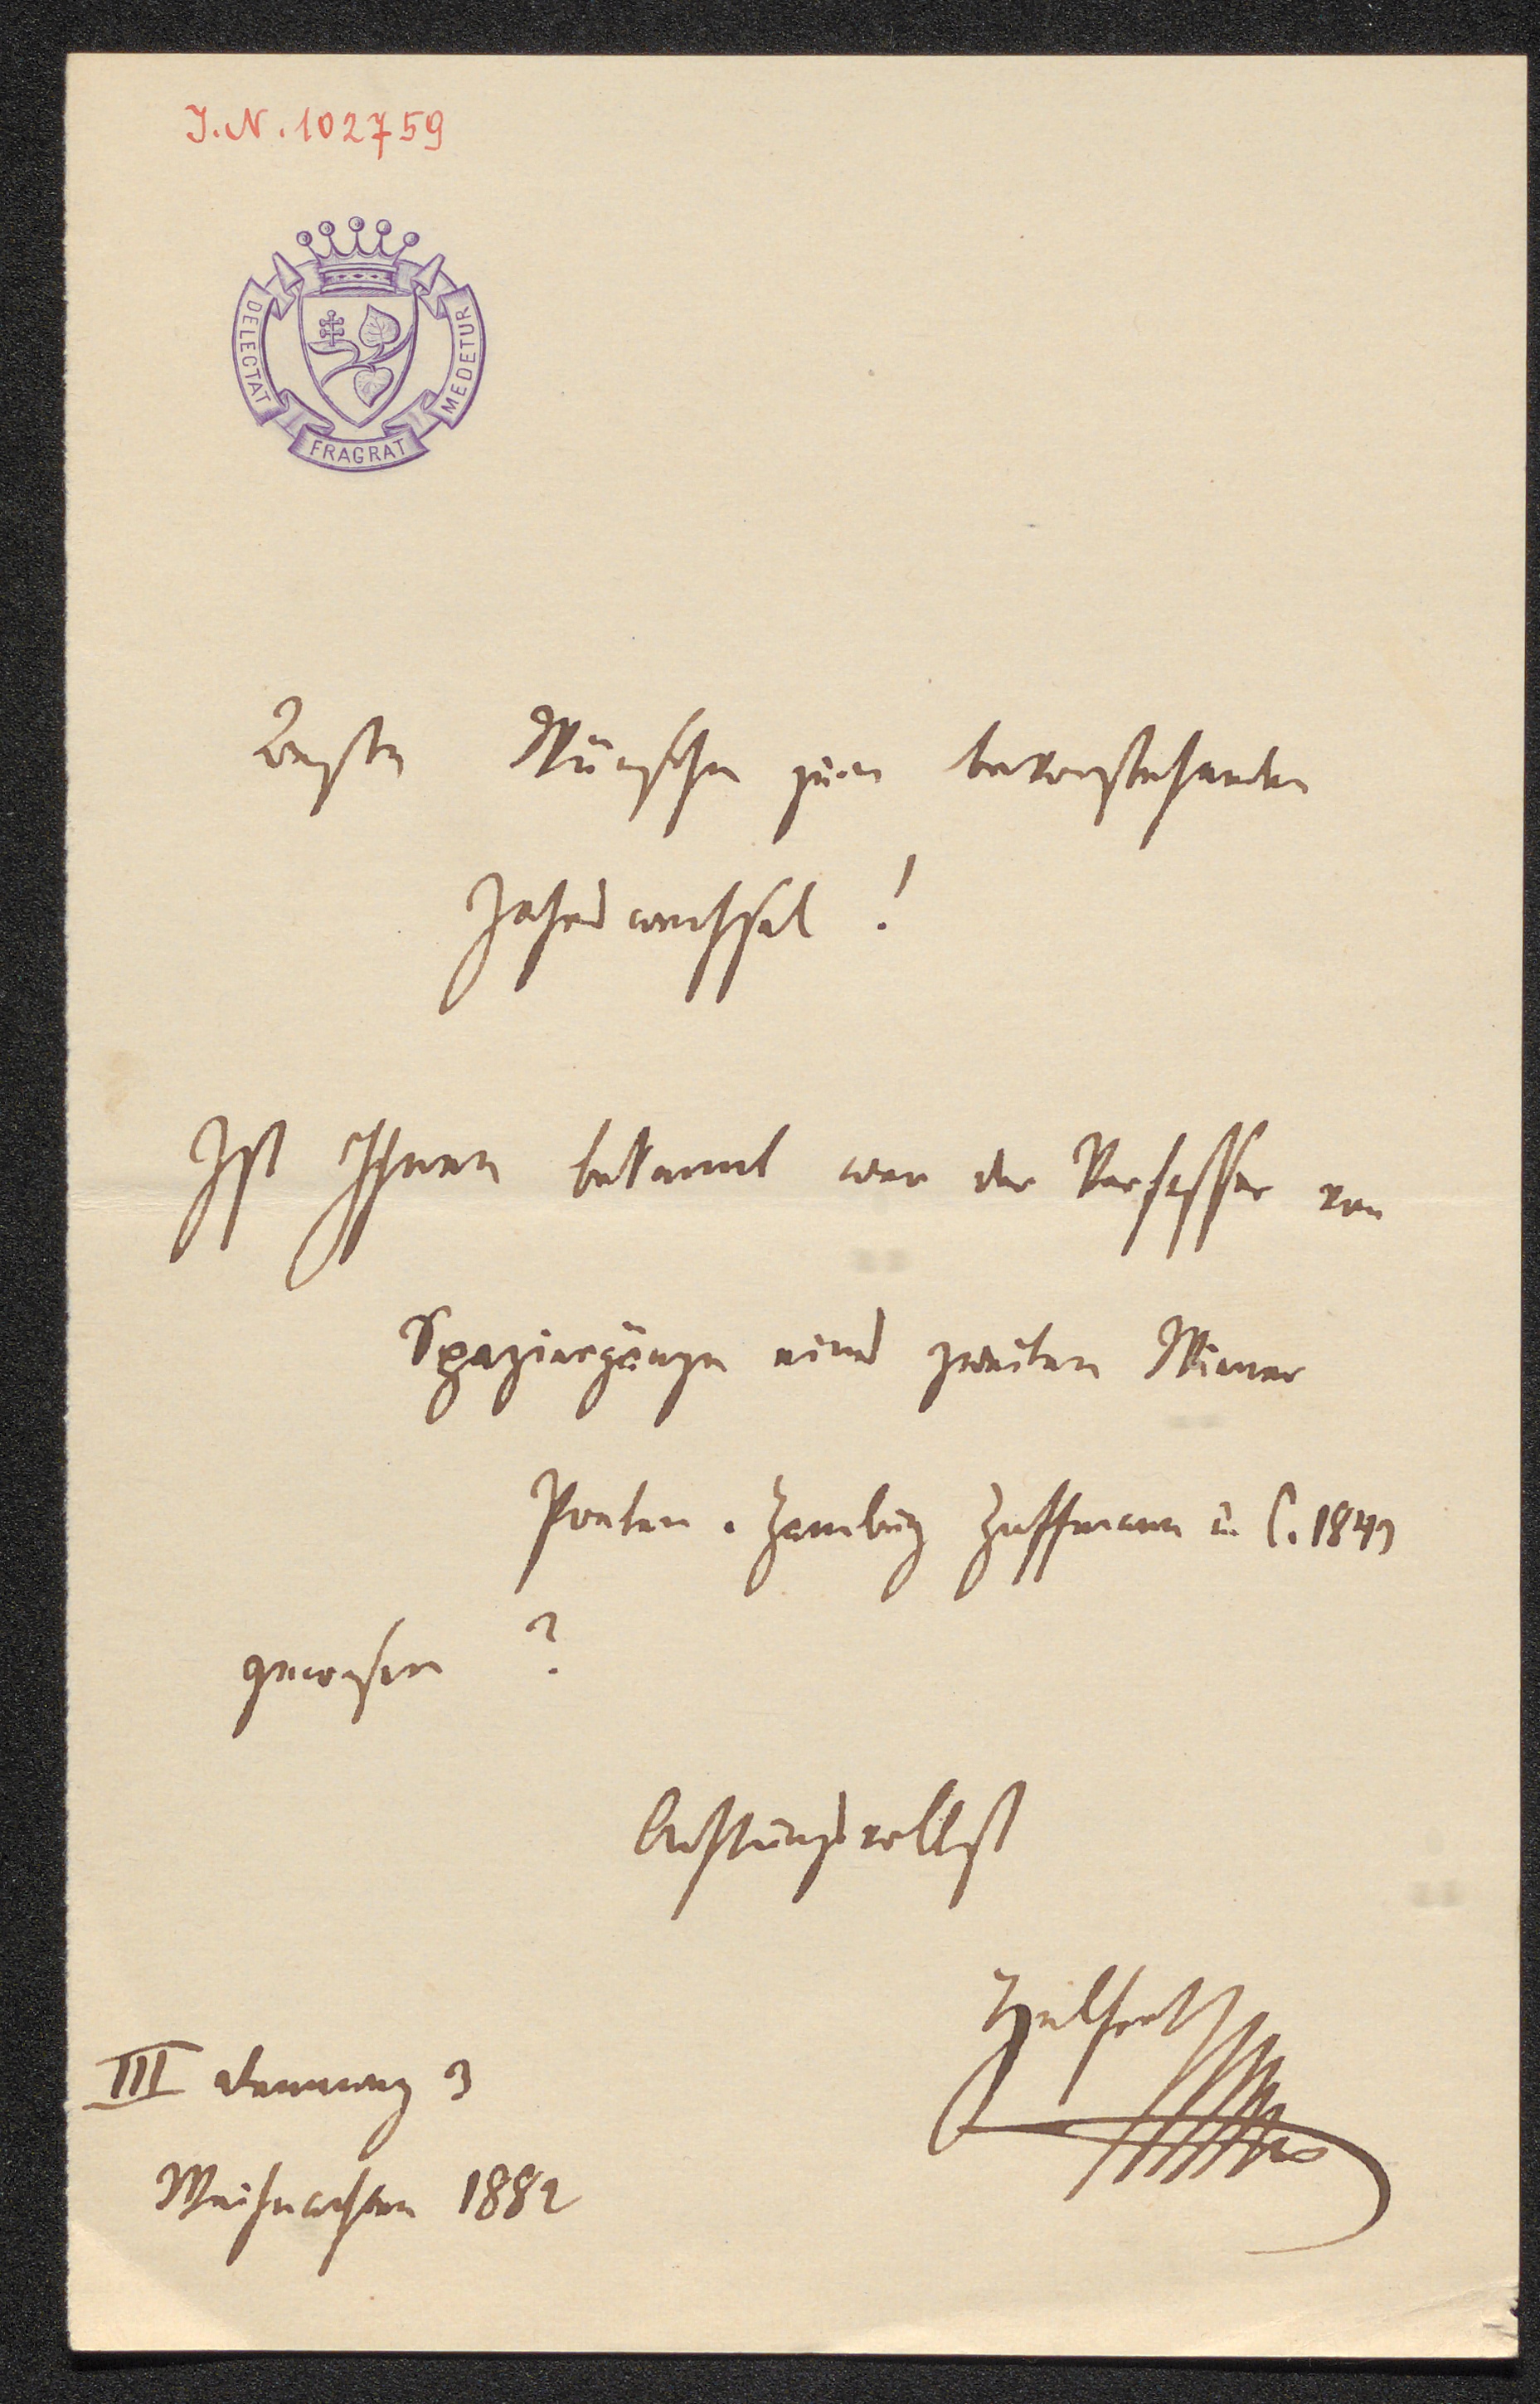 J.N. 102759
DELECTAT
FRAGRAT
MEDETUR
Beste Wünsche zum bevorstehenden
Jahreswechsel!
Ist Ihnen bekannt wer der Verfasser von
Spaziergänge eines zweiten Wiener
Poeten. Hamburg Hoffmann u C. 184
gewesen?
Achtungsvollst
Helfert
III 3
Weihnachten 1882